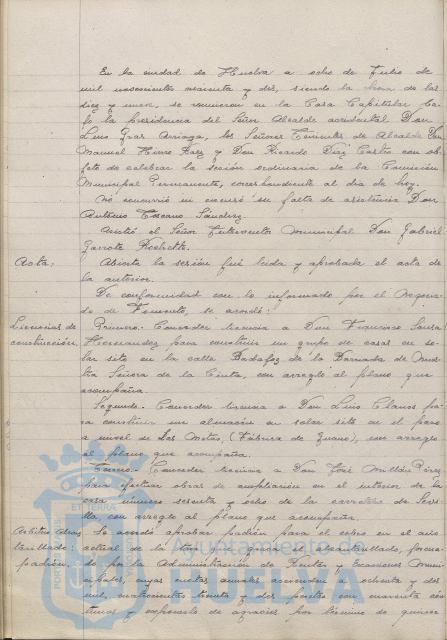 En la ciudad de Huelva a ocho de Julio de
mil novecientos cuarenta y dos, siendo la hora de las
diez y nueve, se reunieron en la Casa Capitular ba-
jo la Presidencia del Señor Alcalde accidental Don
Lino Arriaga, los Señores Tenientes de Alcalde Don
Manuel Páez y Don Ricardo Díaz con ob-
jeto de celebrar la sesión ordinaria de la Comisión
Municipal Permanente, correspondiente al día de hoy.
No concurrió ni excusó su falta de asistencia Don
Antonio Toscano Sánchez.
Asistió el Señor Interventor municipal Don Gabriel
Garrote
Acta.
Abierta la sesión fué leída y aprobada el acta de
la anterior.
De conformidad con lo informado por el Negocia-
do de Fomento, se acordó:
Licencias de construcción.
Primero.- Conceder licencia a Don Francisco
Hernandez para construir un grupo de casas en so-
lar sito en la calle Badajoz de la Barriada de Nues-
tra Señora de la Cinta, con arreglo al plano que
acompaña.
Segundo.- Conceder licencia a Don Lino pa-
ra construir un almacén en solar sito en el paso
a nivel de Las Metas, (Fábrica de Guano), con arreglo
al plano que acompaña.
Tercero.- Conceder licencia a Don José Millán Pérez
para efectuar obras de ampliación en el interior de la
casa número sesenta y ocho de la carretera de Sevi-
lla con arreglo al plano que acompaña.
Arbitrios
tarillado:
padrón.
Se acordó aprobar padrón para el cobro en el año
actual de la tasa por alcantarillado, forma-
do por la Administración de Rentas y Exacciones Muni-
cipales, cuyas cuotas anuales ascienden a ochenta y dos
mil, cuatrocientas treinta y dos pesetas con cuarenta cén-
timos y exponerlo de agravios por término de quince
PORTUS
ET TERRAE
Ayuntamiento de
HUELVA